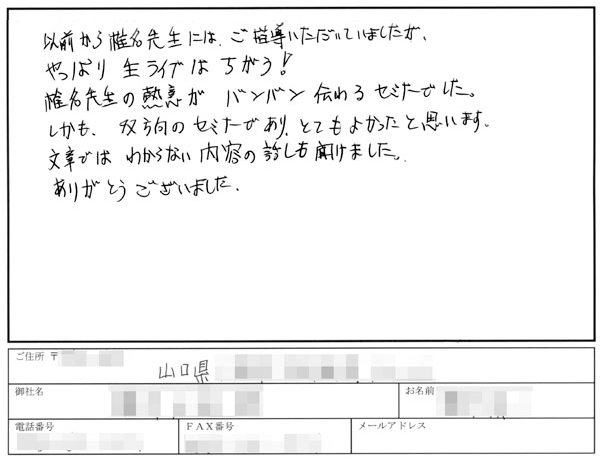 以前から椎名先生には、ご指導いただいていましたが、
やっぱり 生ライブは ちがう!
椎名先生の熱意が バンバン 伝わるセミナーでした。
しかも、双方向のセミナーであり、とてもよかったと思います。
文章では わからない 内容の話しも聞けました。
ありがとうございました。
ご住所 〒
山口県
御社名 お名前
電話番号 FAX番号 メールアドレス